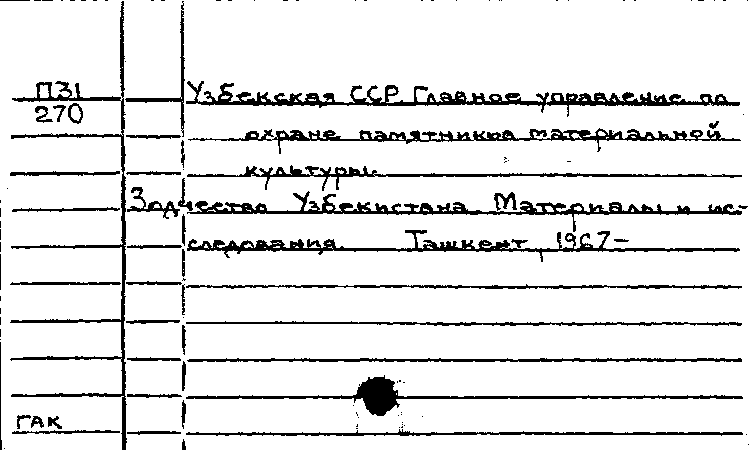 П31
270
Узбекская ССР. Главное управление по
охране памятников материальной
культуры.
Зодчество Узбекистана. Материалы и ис-
следования. Ташкент, 1967-
ГАК